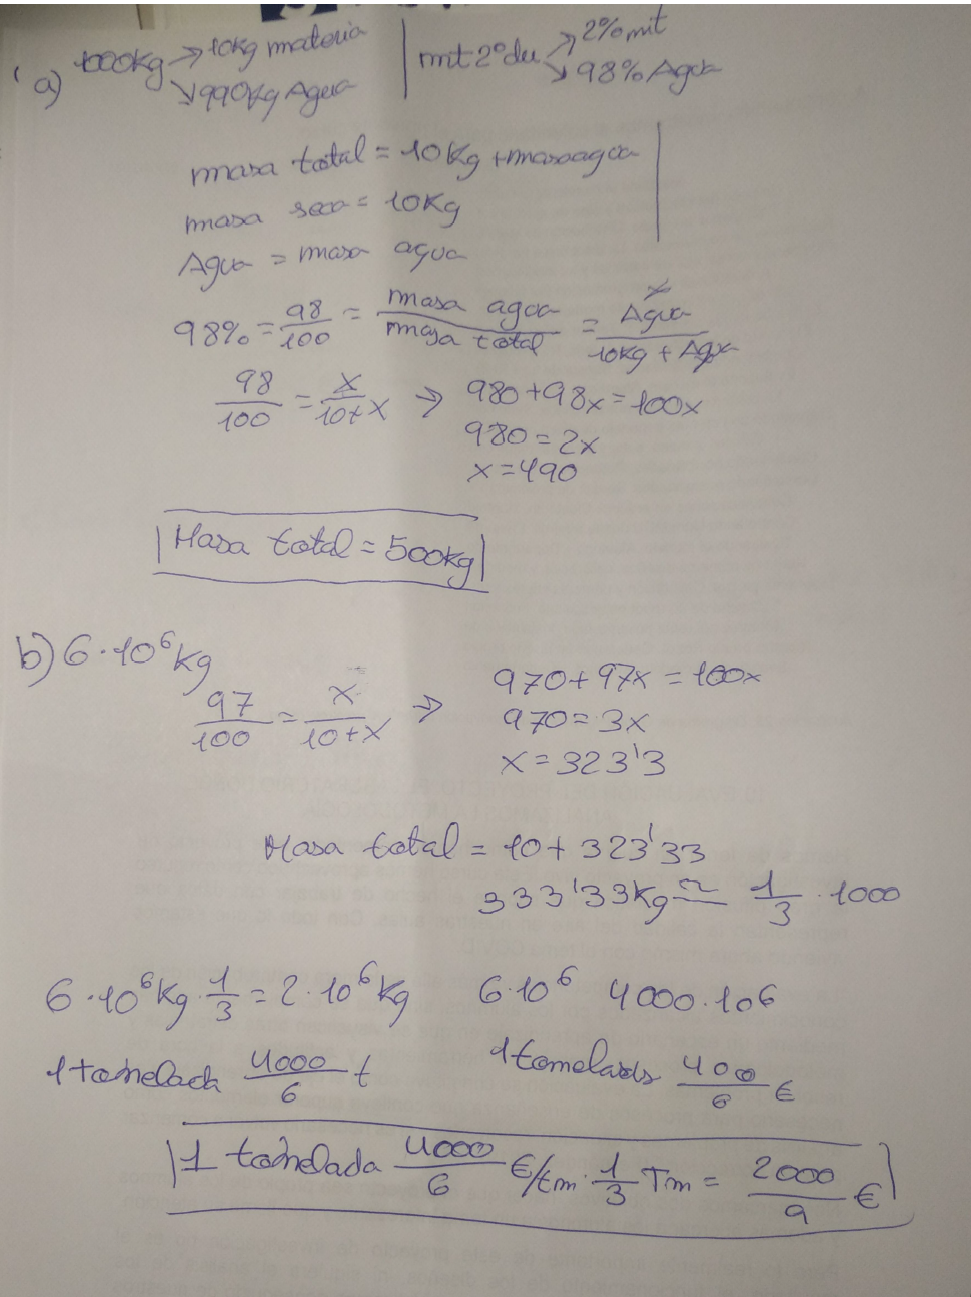 a) 1000Kg → 10Kg materia | mt 2º du → 2% mt
↘ 990Kg Agua ↘ 98% Agua
masa total = 10Kg + masa agua
masa seca = 10Kg
Agua = masa agua
98% = 98/100 = masa agua/masa total = Agua/10Kg + Agua
98/100 = x/10+x → 980+98x = 100x
980 = 2x
x = 490
Masa total = 500Kg
b) 6·10⁶Kg
97/100 = x/10+x → 970+97x = 100x
970 = 3x
x = 323'3
Masa total = 10 + 323'33
333'33Kg ≃ 1/3 · 1000
6·10⁶Kg · 1/3 = 2·10⁶Kg 6·10⁶ 4000·10⁶
1 tonelada 4000/6 t 1 toneladas 400/6 €
1 tonelada 4000/6 €/tm · 1/3 Tm = 2000/9 €